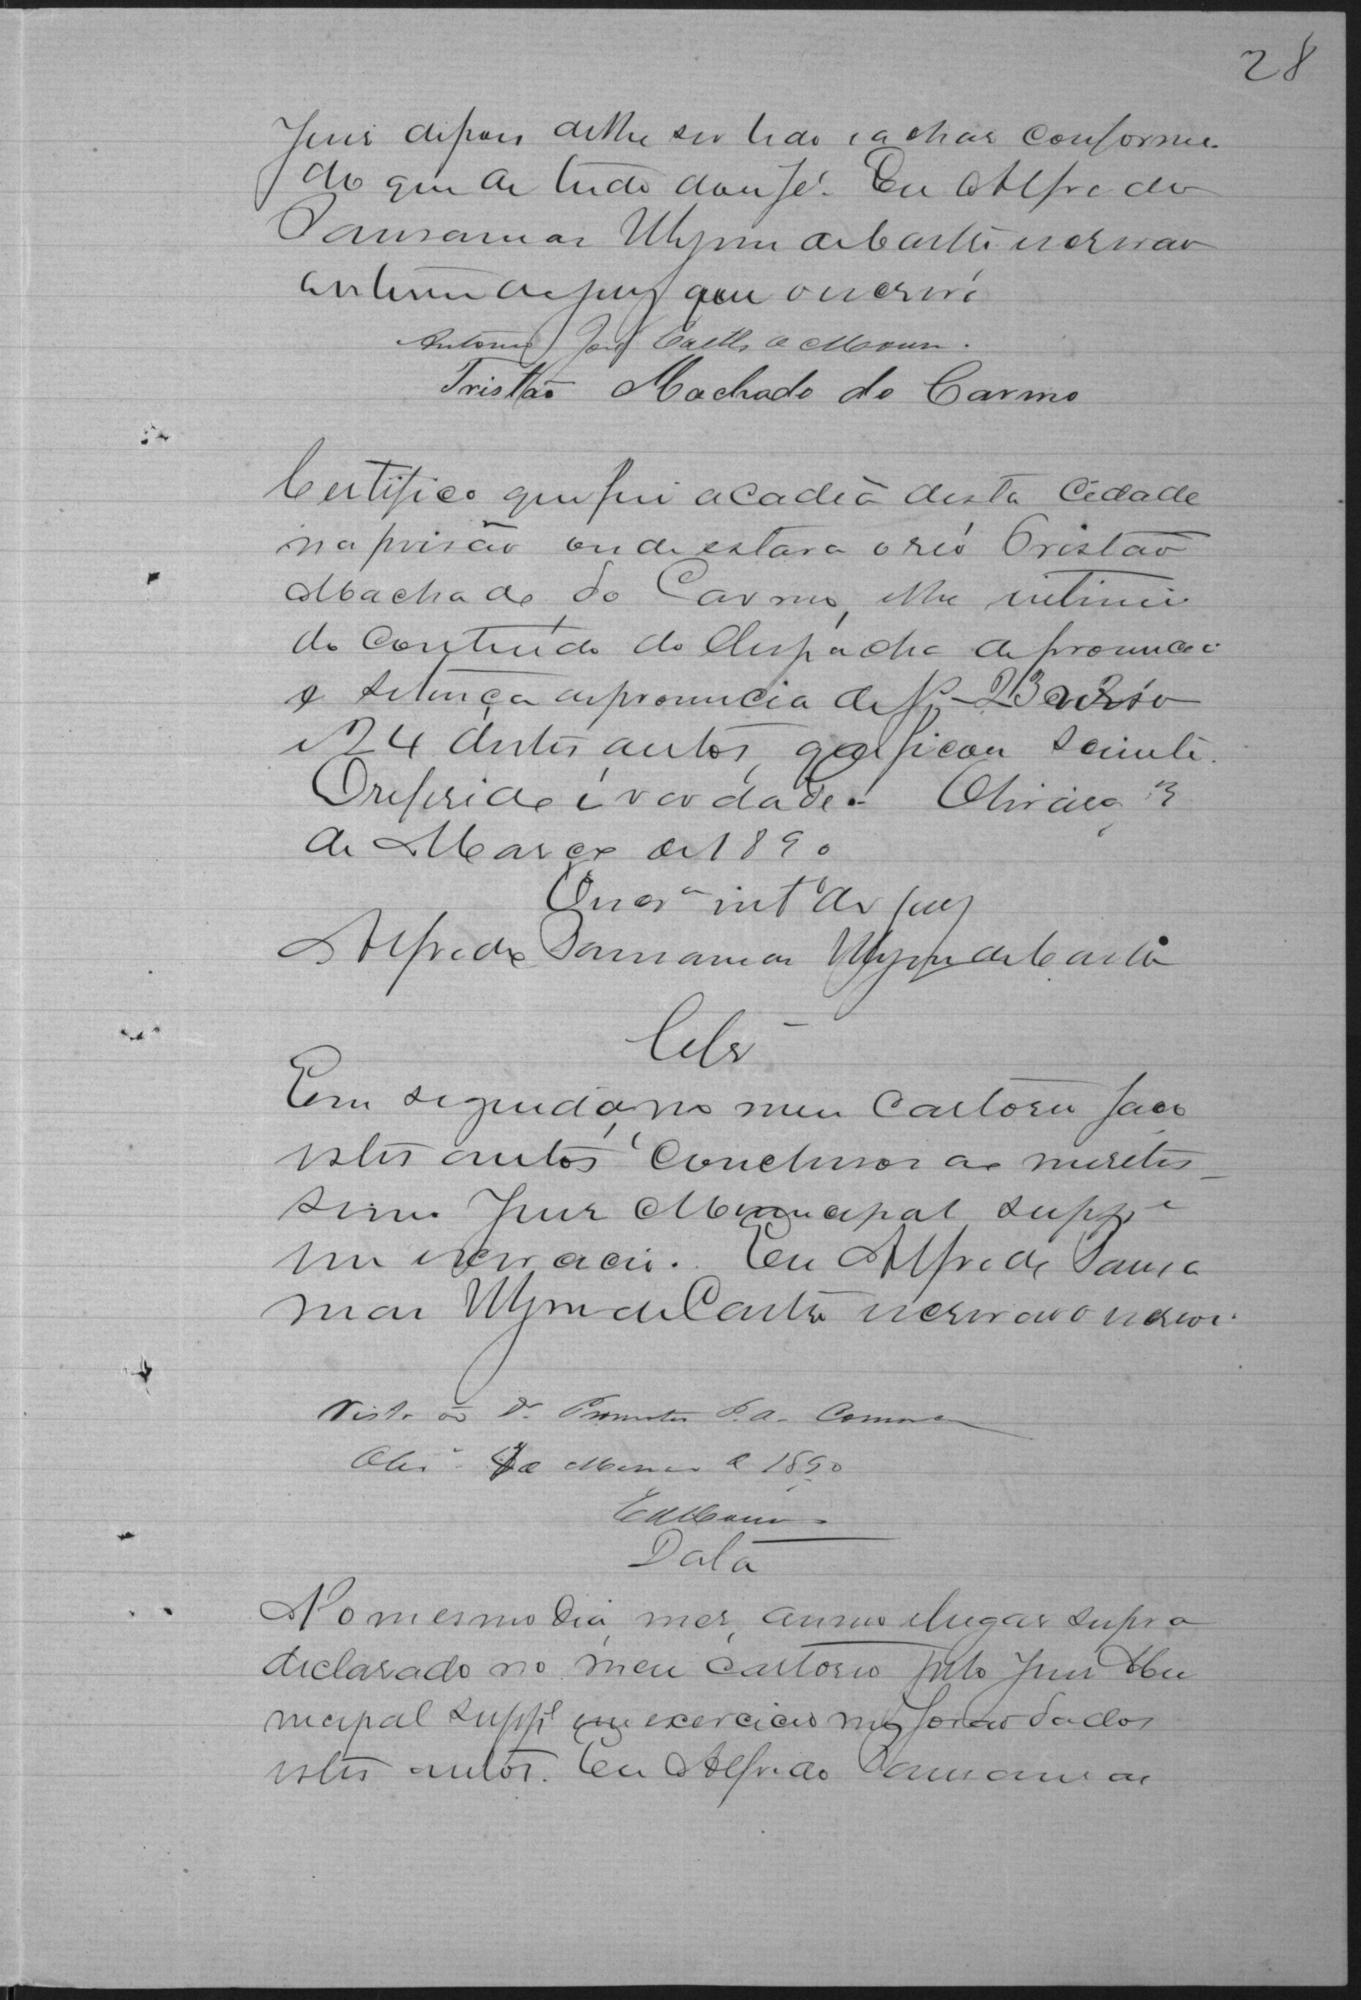 28
Juiz depois de lhe ser lido e achar conforme
do que de tudo dou fé. Eu Alfredo
Pansamar Wynn de Castro escrivão
interino de paz que o escrevi
Antonio José
Tristão Machado do Carmo
Certifico que fui a cadeia desta Cidade
na prisão onde estava o réo Tristão
Machado do Carmo, e lhe intimei
do contheúdo do despacho de pronuncia
e setença de pronuncia de fs 23 verso
e 24 destes autos, que ficou sciente.
O referido é verdade.
de Março de 1890
O Escam intº de paz
Alfredo Pansamar Wynn de Castro
Clsr
Em seguida, no meu Cartorio faço
estes autos conclusos ao meretis
simo Juiz Municipal suppe
em exercicio. Eu Alfredo Pansa
mar Wynn de Castro escrivão o escrevi.
Vista ao Dr. Promotor P. da Comarca
de 1890
Data
No mesmo dia, mez, anno e lugar supra
declarado no meu cartorio pelo Juiz Mu
nicipal suppe em exercicio me forão dados
estes autos. Eu Alfredo Pansamar